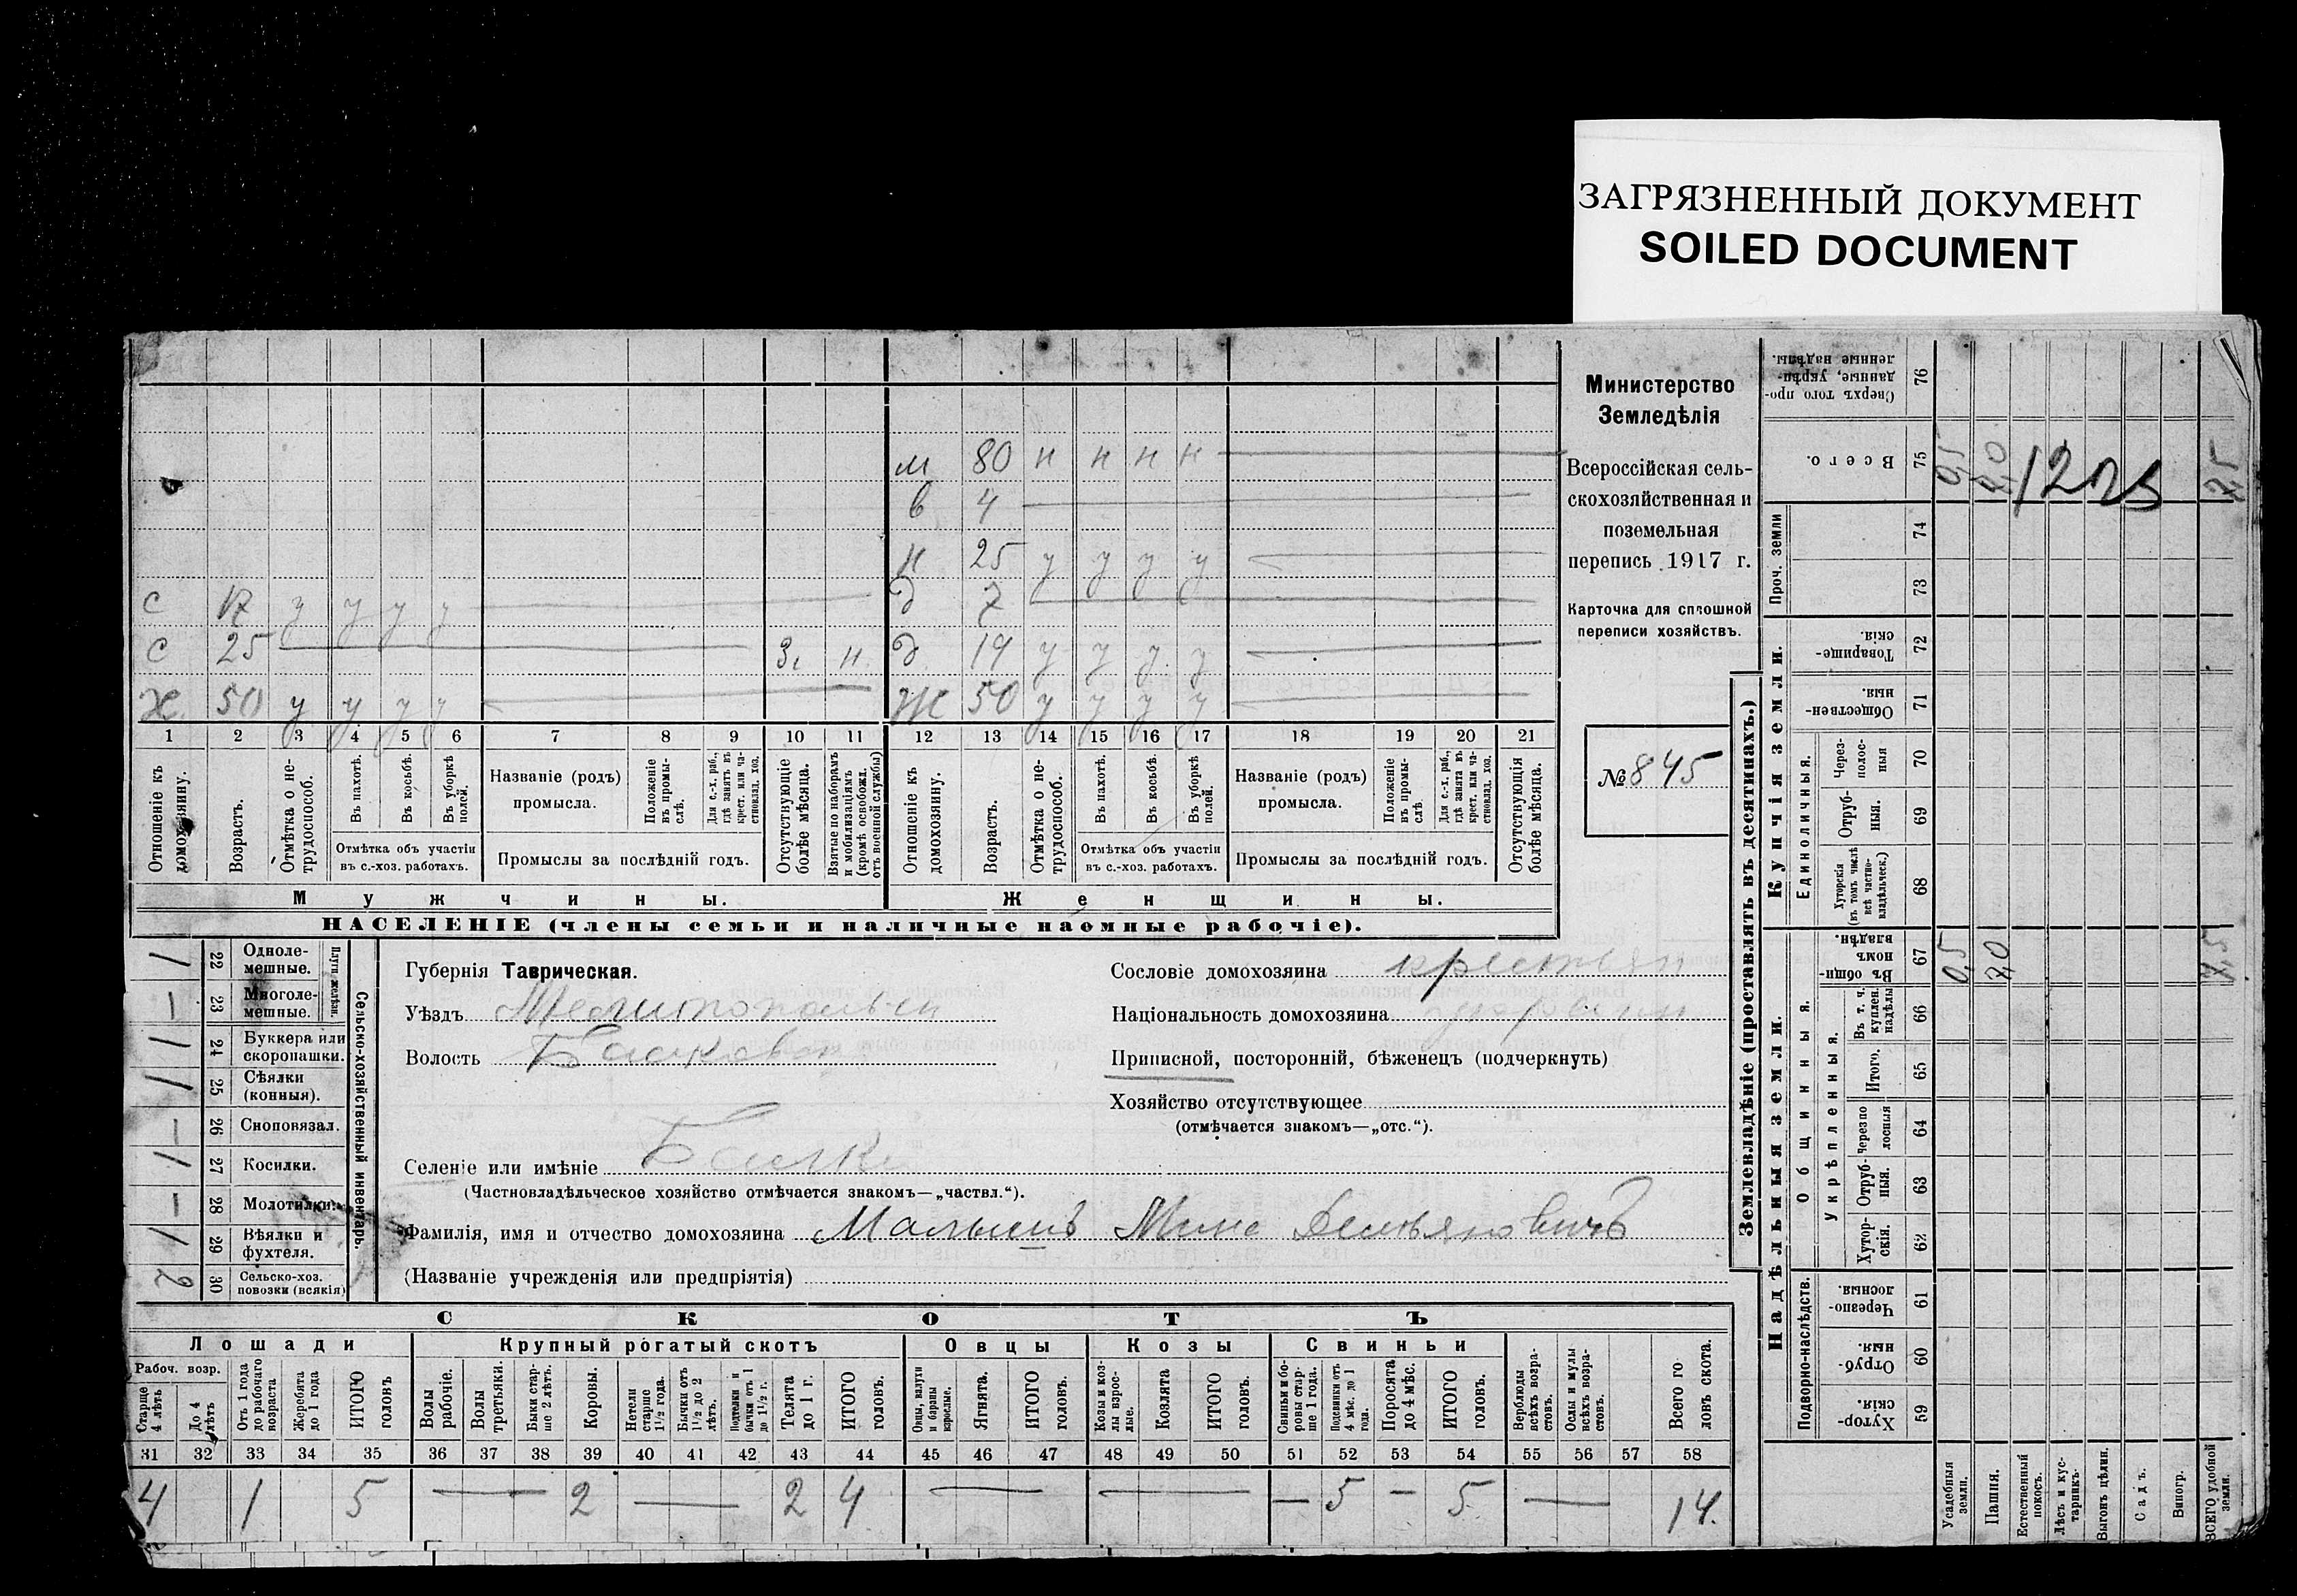 ЗАГРЯЗНЕННЫЙ ДОКУМЕНТ
SOILED DOCUMENT
м 80 н н н н
в 4
н 25 у у у у
с 17 у у у у д 7
с 25 З. н. д. 19 у у у у
х 50 у у у у ж 50 у у у у
1 2 3 4 5 6 7 8 9 10 11 12 13 14 15 16 17 18 19 20 21
Отношеніе къ домохозяину.
Возрастъ.
Отмѣтка о нетрудоспособ.
Въ пахотѣ.
Въ косьбѣ.
Въ уборкѣ полей.
Отмѣтка объ участіи
въ с.-хоз. работахъ.
Названіе (родъ)
промысла.
Положеніе въ промыслѣ.
Для с.-х. раб., гдѣ занятъ въ крест. или частновлад. хоз.
Промыслы за послѣдній годъ.
Отсутствующіе болѣе мѣсяца.
Взятые по наборамъ и мобилизаціямъ (кромѣ освобожд. отъ военной службы)
Отношеніе къ домохозяину.
Возрастъ.
Отмѣтка о нетрудоспособ.
Въ пахотѣ.
Въ косьбѣ.
Въ уборкѣ полей.
Отмѣтка объ участіи
въ с.-хоз. работахъ.
Названіе (родъ)
промысла.
Положеніе въ промыслѣ.
Для с.-х. раб., гдѣ занята въ крест. или частновлад. хоз.
Промыслы за послѣдній годъ.
Отсутствующія болѣе мѣсяца.
Мужчины. Женщины.
НАСЕЛЕНІЕ (члены семьи и наличные наемные рабочіе).
Министерство
Земледѣлія
Всероссійская сель-
скохозяйственная и
поземельная
перепись 1917 г.
Карточка для сплошной
переписи хозяйствъ.
№ 845
1 22 Одноле-
мешные.
— 23 Многоле-
мешные.
Плуги желѣзн.
1 24 Буккера или
скоропашки.
1 25 Сѣялки
(конныя).
— 26 Сноповязал.
1 27 Косилки.
— 28 Молотилки.
1 29 Вѣялки и
фухтеля.
2 30 Сельско-хоз.
повозки (всякія)
Сельско-хозяйственный инвентарь.
Губернія Таврическая.
Уѣздъ Мелитопольск
Волость Балковск
Селеніе или имѣніе Балки
(Частновладѣльческое хозяйство отмѣчается знакомъ—„частвл.“).
Фамилія, имя и отчество домохозяина Малышъ Мина Демьяновичъ
(Названіе учрежденія или предпріятія)
Сословіе домохозяина крестьян
Національность домохозяина
Приписной, посторонній, бѣженецъ (подчеркнуть)
Хозяйство отсутствующее
(отмѣчается знакомъ—„отс.“).
СКОТЪ
Лошади Крупный рогатый скотъ Овцы Козы Свиньи
Рабоч. возр.
Старше 4 лѣтъ
До 4 лѣтъ
Отъ 1 года до рабочаго возраста
Жеребята до 1 года
ИТОГО головъ
Волы рабочіе.
Волы третьяки.
Быки старше 2 лѣтъ.
Коровы.
Нетели старше 1½ года.
Бычки отъ 1½ до 2 лѣтъ.
Подтелки и бычки отъ 1 до 1½ г.
Телята до 1 г.
ИТОГО головъ.
Овцы, валухи и бараны взрослые.
Ягнята.
ИТОГО головъ.
Козы и козлы взрослые.
Козлята
ИТОГО головъ.
Свиньи и боровы старше 1 года.
Подсвинки отъ 4 мѣс. до 1 года.
Поросята до 4 мѣс.
ИТОГО головъ.
Верблюды всѣхъ возрастовъ.
Ослы и мулы всѣхъ возрастовъ.
Всего головъ скота.
31 32 33 34 35 36 37 38 39 40 41 42 43 44 45 46 47 48 49 50 51 52 53 54 55 56 57 58
4 1 5 — 2 — 2 4 — — — 5 — 5 — 14.
Землевладѣніе (проставлять въ десятинахъ.)
Купчія земли.
Надѣльныя земли.
Сверхъ того проданные, укрѣпленные надѣлы. 76
Всего. 75 0,5 7,0 7,5
Проч. земли 74
73
Товарищескія. 72
Общественныя. 71
Единоличныя.
Черезполосныя 70
Отрубныя. 69
Хуторскія (въ томъ числѣ всѣ частновладѣльческ.) 68
Общинныя.
Въ общинномъ владѣн. 67 0,5 7,0 7,5
Укрѣпленныя.
Въ т. ч. куплен. надѣлы 66
Итого. 65
Черезполосныя 64
Отрубныя. 63
Хуторскія. 62
Подворно-наслѣдств.
Черезполосныя. 61
Отрубныя. 60
Хуторскія. 59
Усадебныя земли.
Пашня.
Естественный покосъ.
Лѣсъ и кустарникъ.
Выгонъ цѣлин.
Садъ.
Виногр.
ВСЕГО удобной земли.